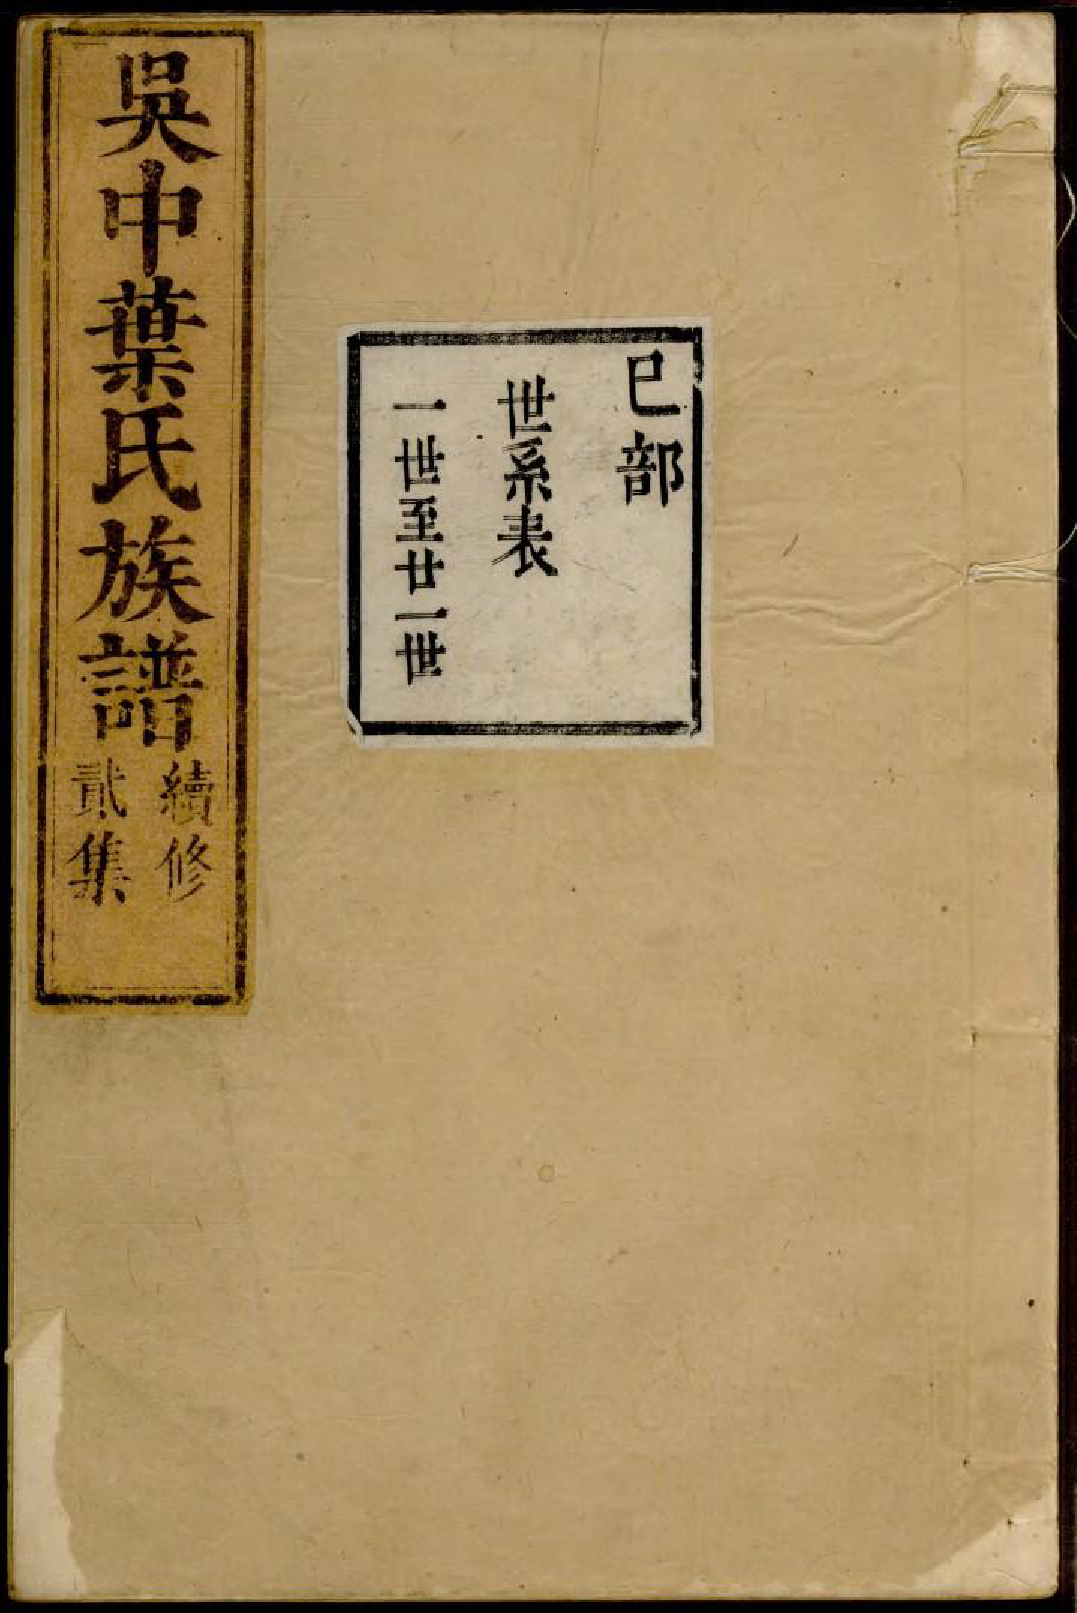 吳中葉氏族譜
續修
貳集
巳部
世系表
一世至廿一世